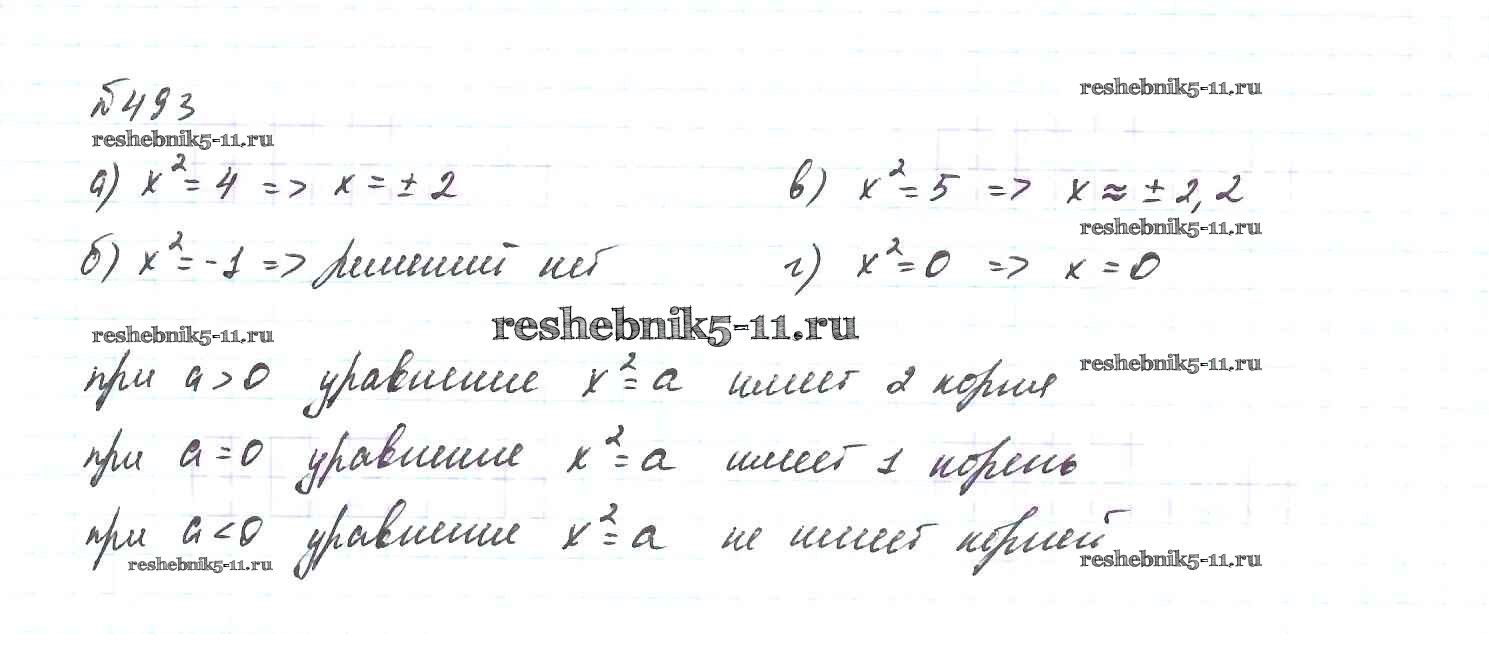 №493
reshebnik5-11.ru
reshebnik5-11.ru
а) x² = 4 => x = ± 2
в) x² = 5 => x ≈ ± 2,2
reshebnik5-11.ru
б) x² = -1 => решений нет
г) x² = 0 => x = 0
reshebnik5-11.ru
reshebnik5-11.ru
reshebnik5-11.ru
при a > 0 уравнение x² = a имеет 2 корня
при a = 0 уравнение x² = a имеет 1 корень
при a < 0 уравнение x² = a не имеет корней
reshebnik5-11.ru
reshebnik5-11.ru